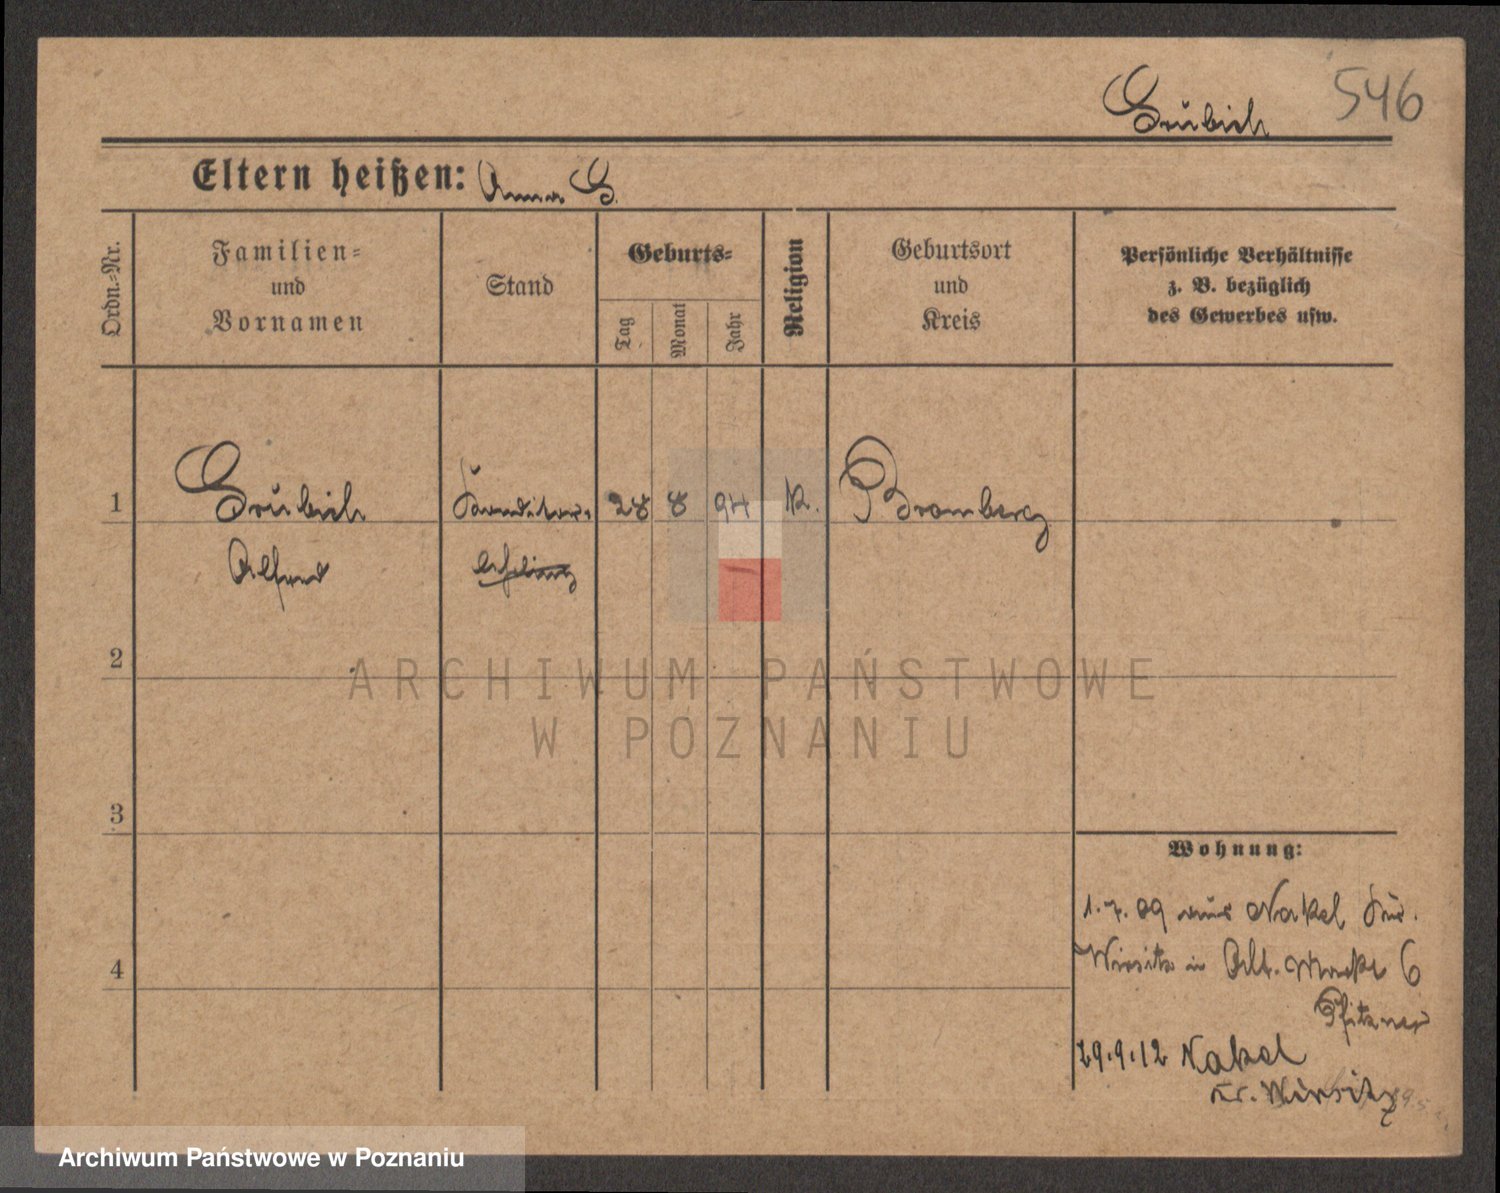 Grubich 546
Eltern heißen: Anna G.
Ordn.-Nr.
Familien-
und
Vornamen
Stand
Geburts-
Tag
Monat
Jahr
Religion
Geburtsort
und
Kreis
Persönliche Verhältnisse
z. B. bezüglich
des Gewerbes usw.
1 Grubich Konditor- 28 8 94 K. Bromberg
Alfred lehrling
2
3
4
Wohnung:
1.7.09 aus Nakel Kr.
Wirsitz in Alt. Markt 6
Pfitzner
29.9.12 Nakel
Kr. Wirsitz
ARCHIWUM PAŃSTWOWE
W POZNANIU
Archiwum Państwowe w Poznaniu